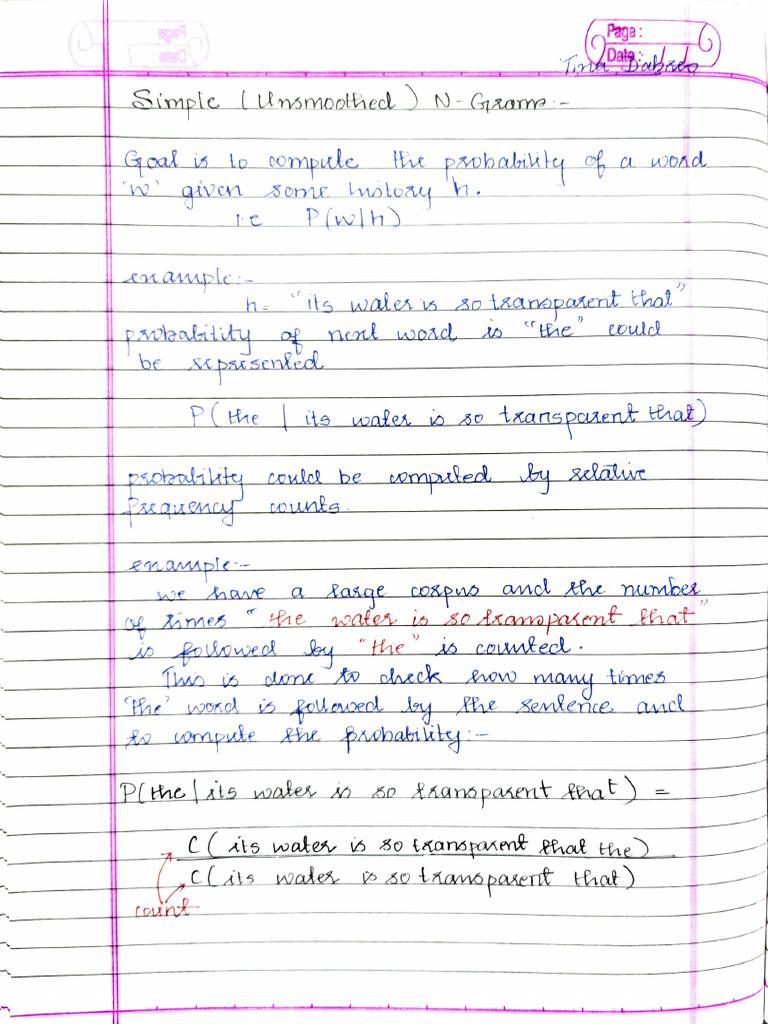 Page:
Date:
Tina Dabreo
Simple (Unsmoothed) N-Grams:-
Goal is to compute the probability of a word
'w' given some history h.
i.e P(w/h)
example:-
h= "its water is so transparent that"
probability of next word is "the" could
be represented
P(the | its water is so transparent that)
probability could be computed by relative
frequency counts.
example:-
we have a large corpus and the number
of times "the water is so transparent that"
is followed by "the" is counted.
This is done to check how many times
'the' word is followed by the sentence and
to compute the probability:-
P(the | its water is so transparent that) =
C( its water is so transparent that the)
C( its water is so transparent that)
count